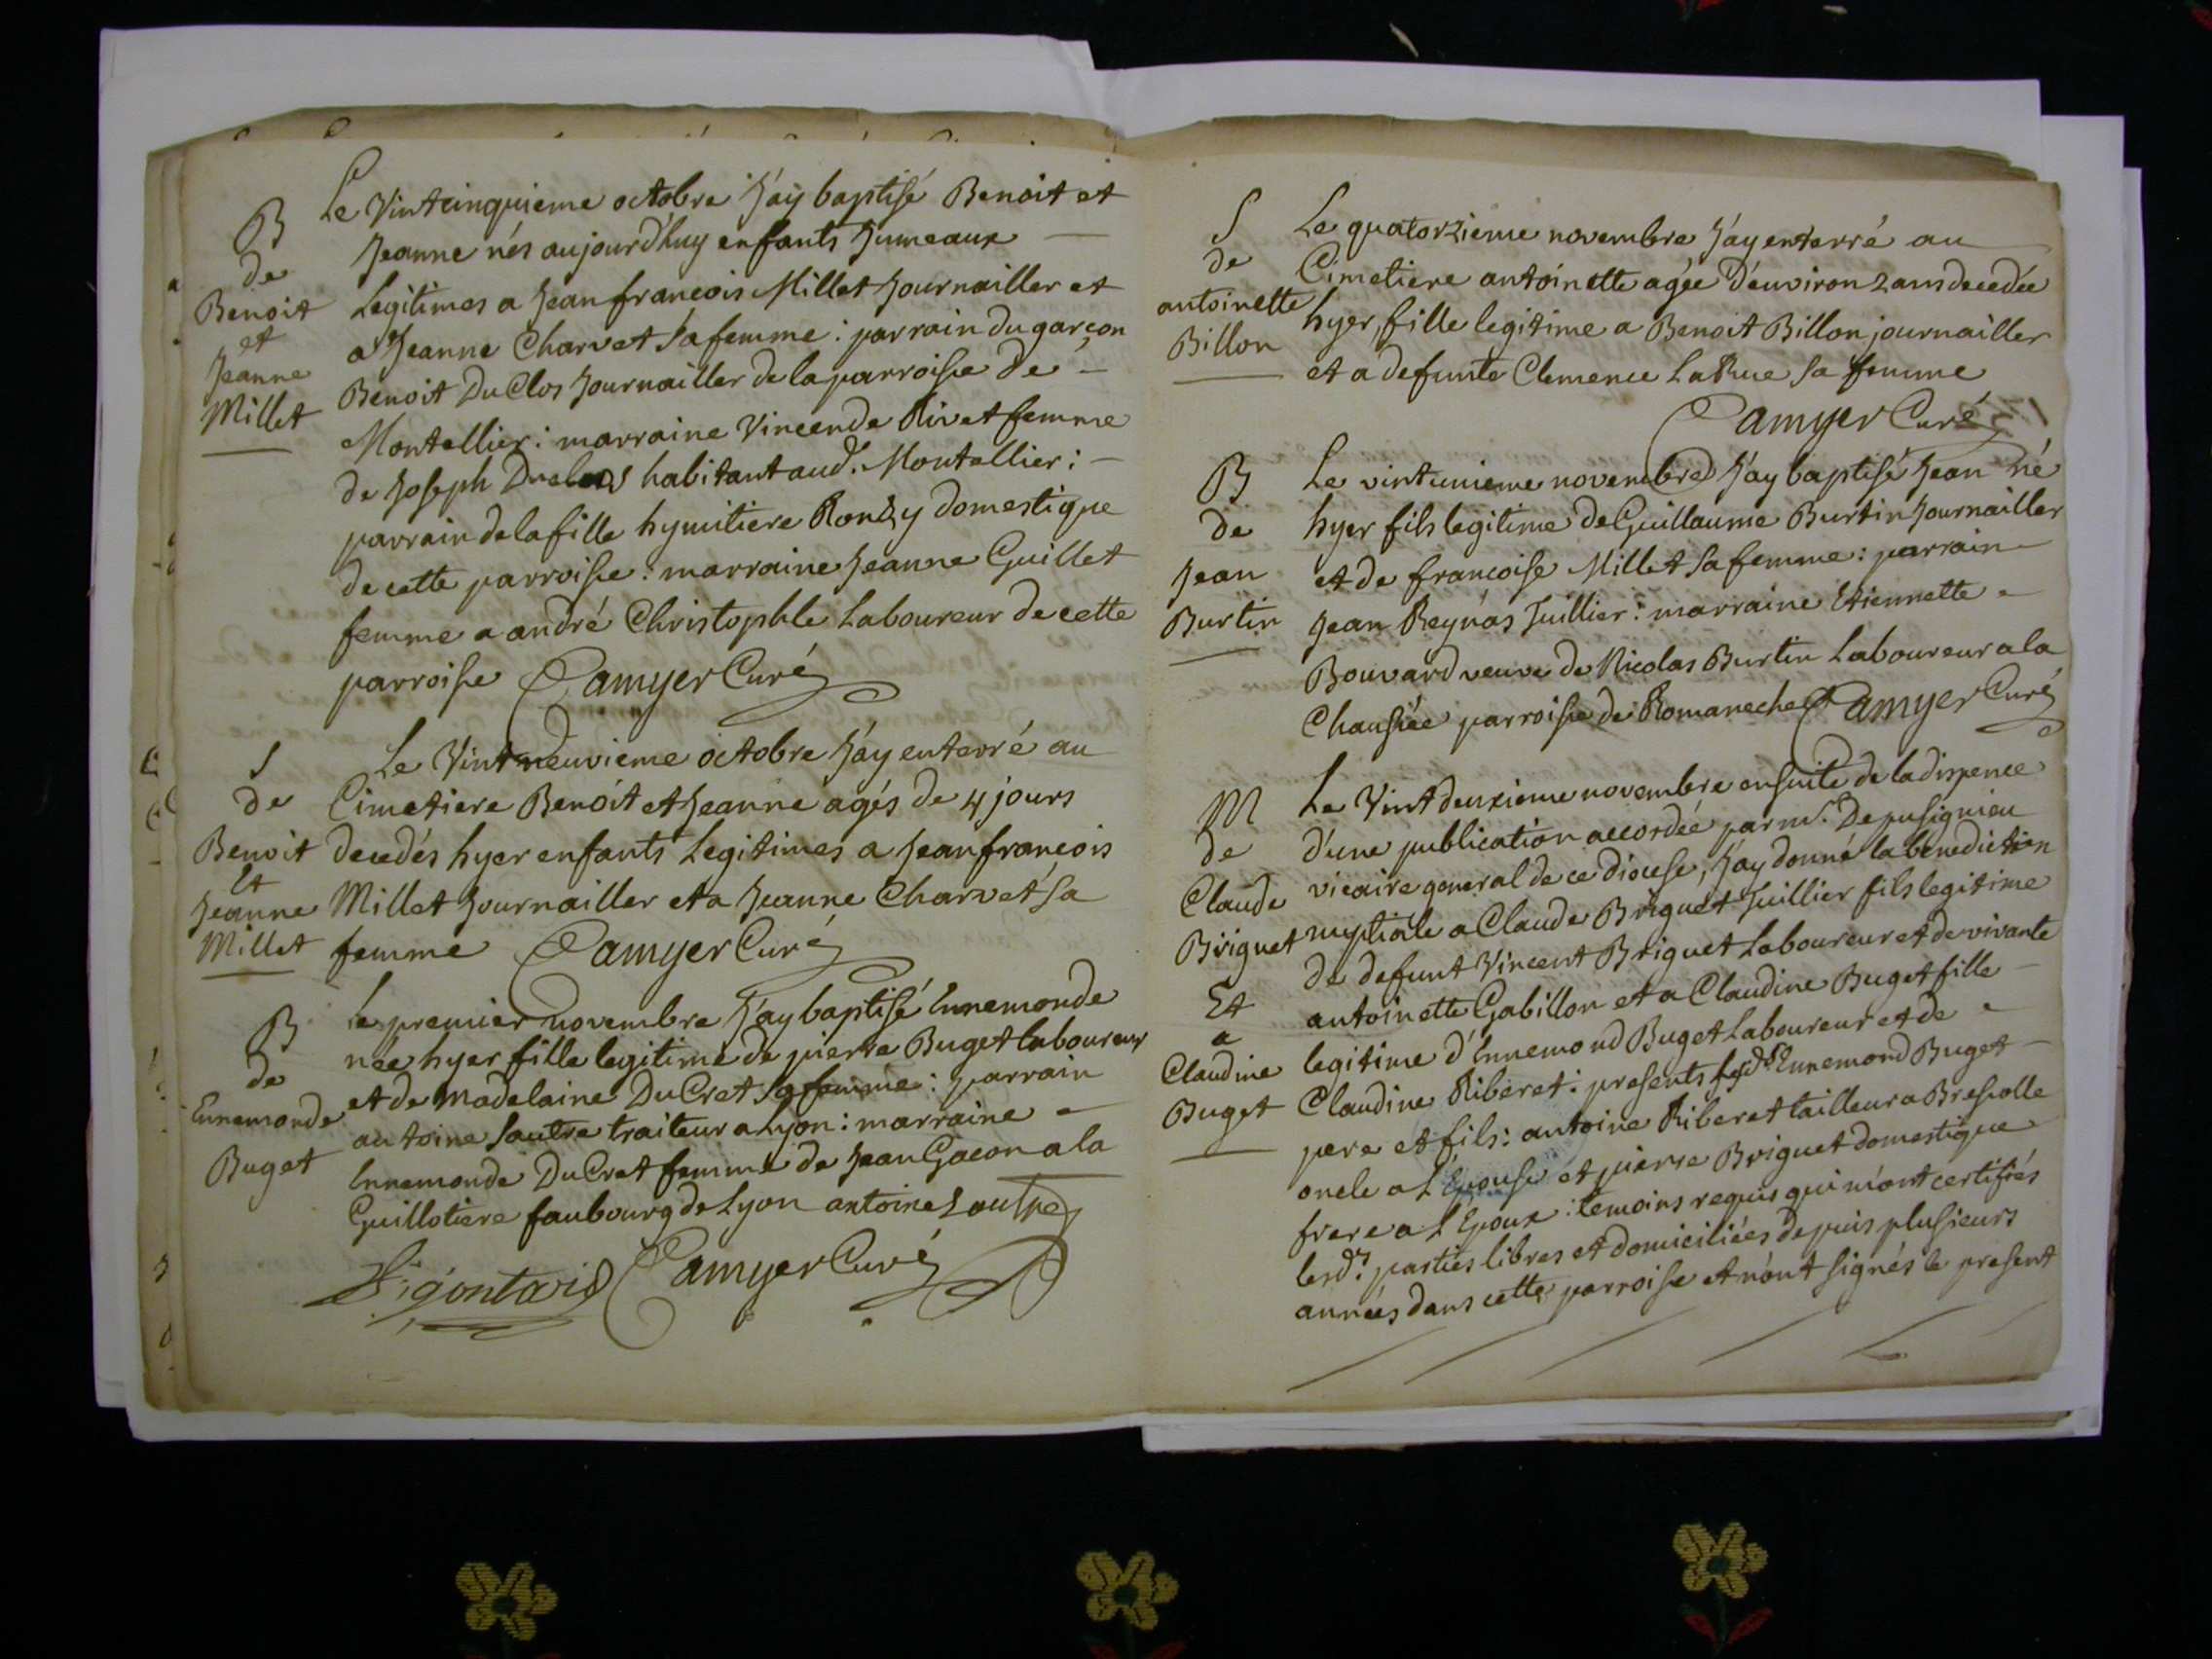 B
de
Benoit
et
Jeanne
Millet
Le Vintcinquieme octobre J'ay baptisé Benoit et
Jeanne nés aujourd'huy enfants Jumeaux
Legitimes a Jean francois Millet Journailler et
a Jeanne Charvet sa femme : parrain du garçon
Benoit DuClos Journailler de la parroisse de
Montellier : marraine Vincende Rivet femme
de Joseph Duclos habitant aud. Montellier :
parrain de la fille hymitiere Rondy domestique
de cette parroisse : marraine Jeanne Guillet
femme a andré Christophle Laboureur de cette
parroisse Camyer Curé
S
de
Benoit
et
Jeanne
Millet
Le Vintneuvieme octobre J'ay enterré au
Cimetiere Benoit et Jeanne agés de 4 jours
decedés hyer enfants Legitimes a Jean francois
Millet Journailler et a Jeanne Charvet sa
femme Camyer Curé
B
de
Ennemonde
Buget
Le premier novembre J'ay baptisé Ennemonde
née hyer fille legitime de pierre Buget laboureur
et de Madelaine DuCret sa femme : parrain
antoine Sautre traiteur a Lyon : marraine
Ennemonde DuCret femme de Jean Gacon a la
Guillotiere faubourg de Lyon antoine
Camyer Curé
S
de
antoinette
Billon
Le quatorzieme novembre J'ay enterré au
Cimetiere antoinette agée d'environ 2 ans decedée
hyer, fille legitime a Benoit Billon journailler
et a defunte Clemence LaRue sa femme
Camyer Curé
B
de
Jean
Burtin
Le vintunieme novembre J'ay baptisé Jean né
hyer fils legitime de Guillaume Burtin Journailler
et de francoise Millet sa femme : parrain
Jean Reynas Tuillier : marraine Etiennette
Bouvard veuve de Nicolas Burtin Laboureur a la
Chaussée parroisse de Romaneche Camyer Curé
M
de
Claude
Briguet
Et
a
Claudine
Buget
Le Vintdeuxieme novembre ensuite de la dispence
d'une publication accordée par mr. De pusignieu
vicaire general de ce diocese, J'ay donné la benediction
nuptiale a Claude Briguet Tuillier fils legitime
de defunt Vincent Briguet Laboureur et de vivante
antoinette Gabillon et a Claudine Buget fille
legitime d'Ennemond Buget Laboureur et de
Claudine Riberet : presents lesd. Ennemond Buget
pere et fils : antoine Riberet tailleur a Bressolle
oncle a L'Epouse et pierre Briguet domestique
frere a L'Epoux : temoins requis qui m'ont certifiés
lesd. parties libres et domiciliées depuis plusieurs
années dans cette parroisse et n'ont signés le present